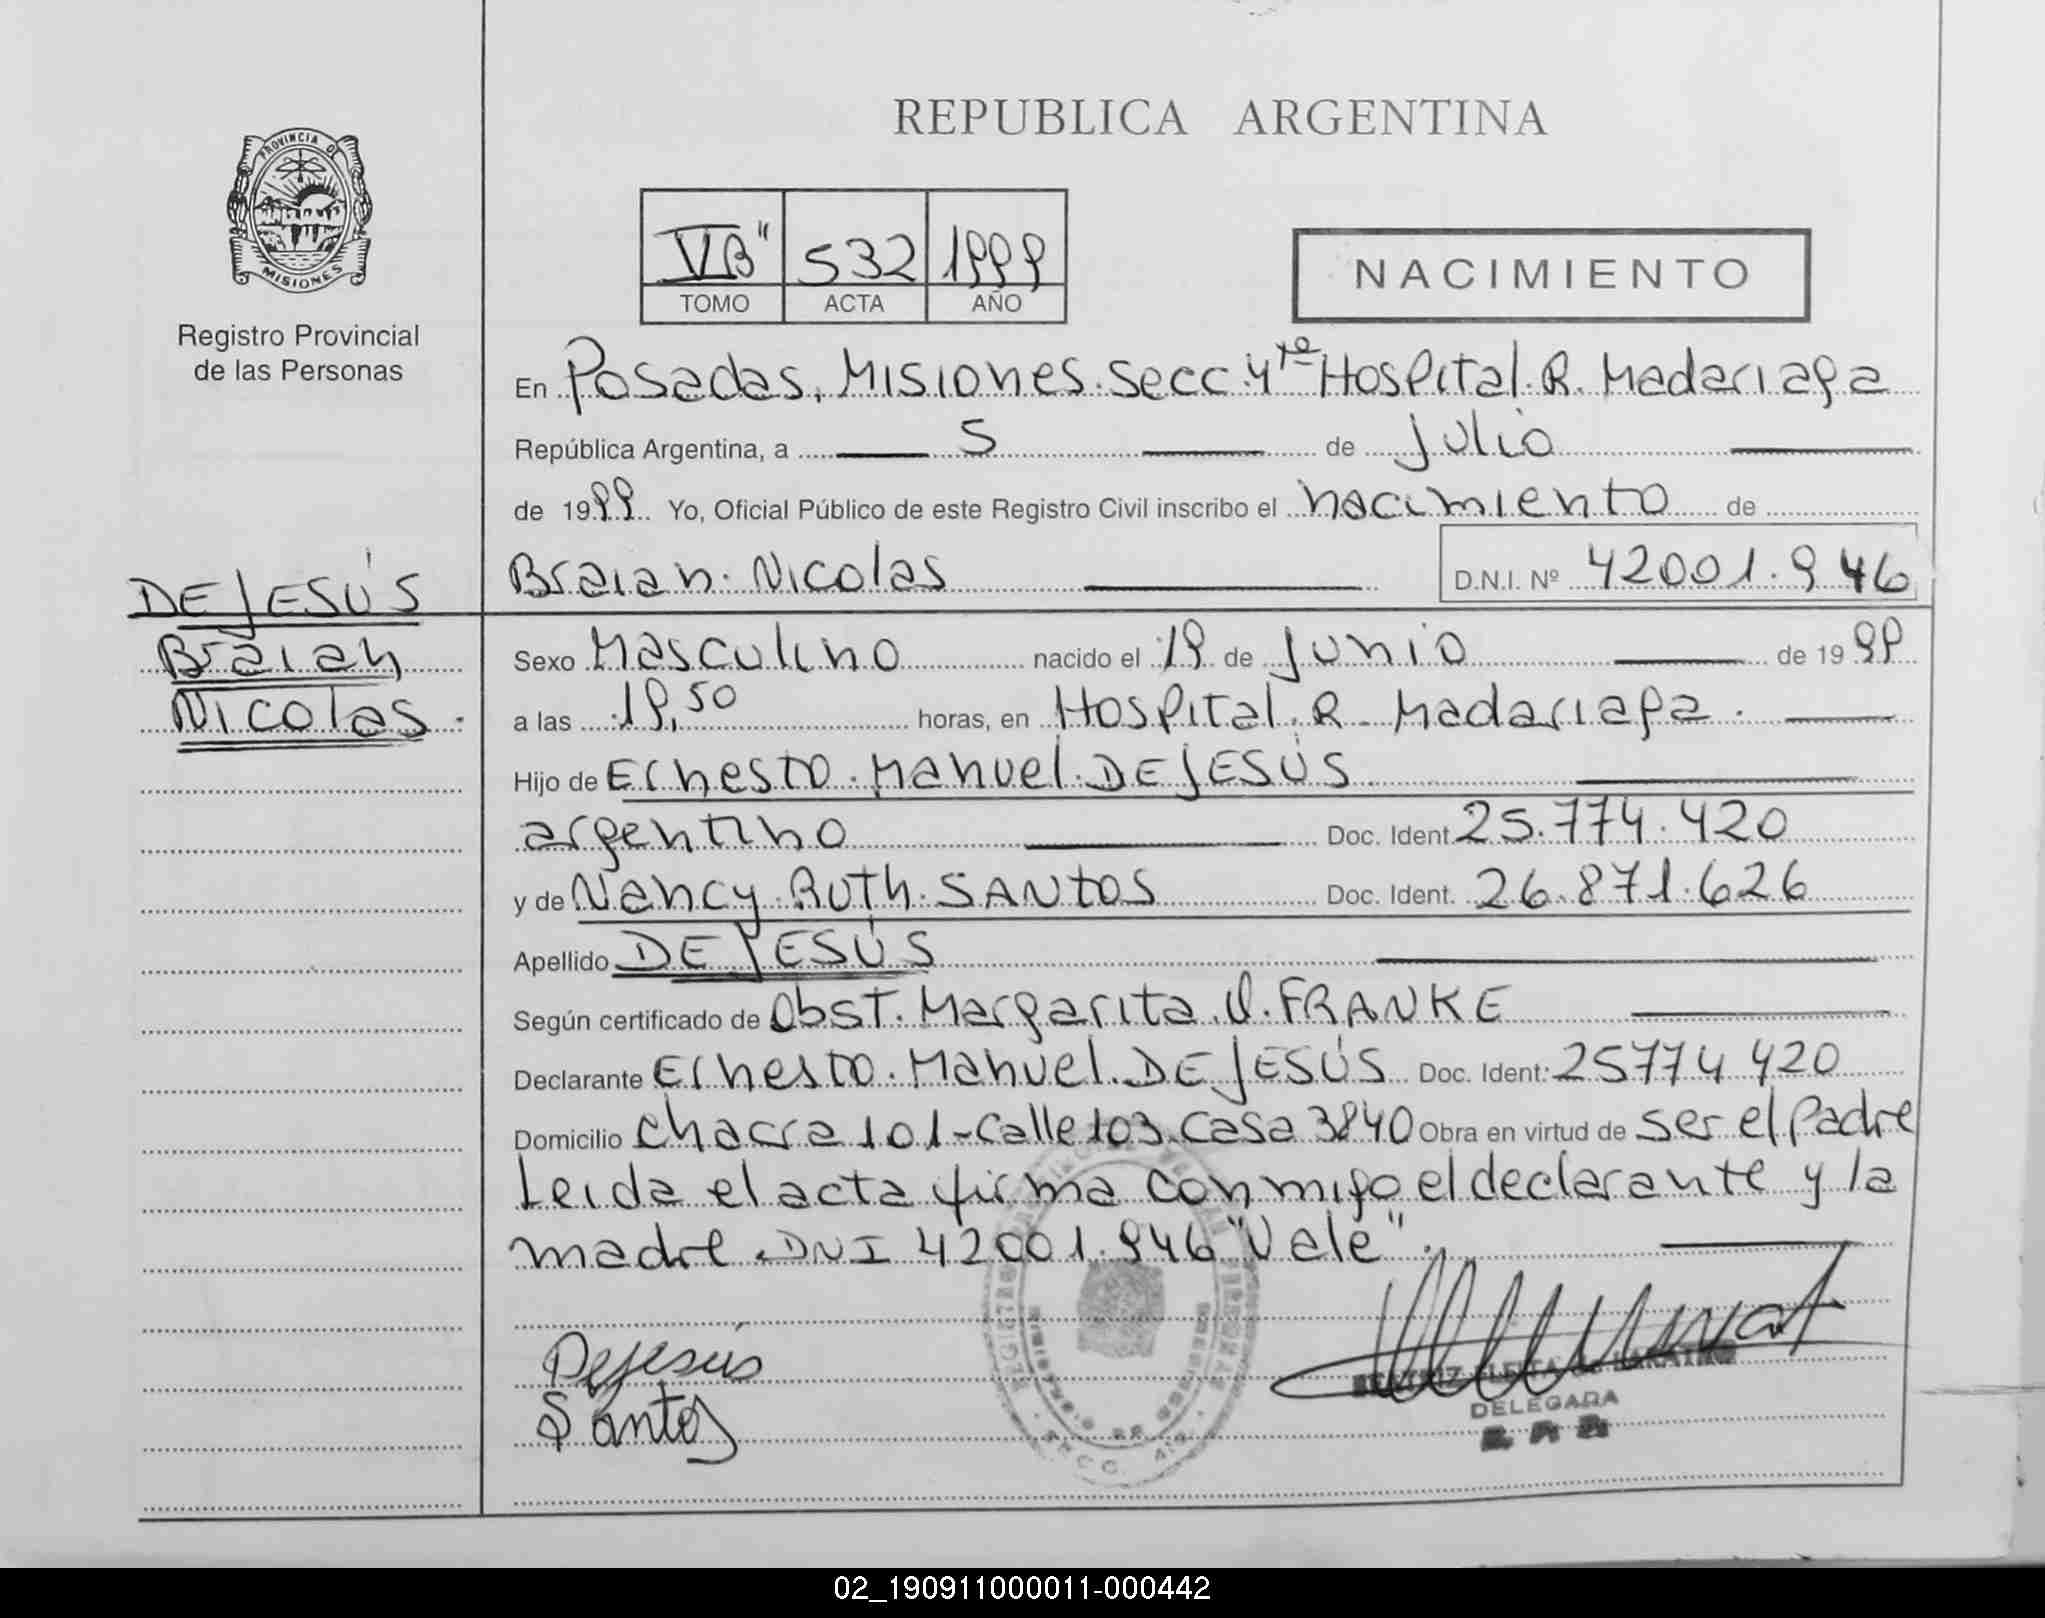 REPUBLICA ARGENTINA
PROVINCIA DE
MISIONES
Registro Provincial
de las Personas
VB" 532 1999
TOMO ACTA AÑO
NACIMIENTO
En Posadas, Misiones. Secc. 4ta Hospital. R. Madariaga
República Argentina, a 5 de Julio
de 1999 Yo, Oficial Público de este Registro Civil inscribo el nacimiento de
Braian. Nicolas D.N.I. Nº 42001.946
DE JESÚS
Braian
Nicolas.
Sexo Masculino nacido el 19 de Junio de 1999
a las 19,50 horas, en Hospital. R. Madariaga.
Hijo de Ernesto. Manuel. DE JESÚS
argentino Doc. Ident. 25.774.420
y de Nancy. Ruth. SANTOS Doc. Ident. 26.871.626
Apellido DE JESÚS
Según certificado de Obst. Margarita. FRANKE
Declarante Ernesto. Manuel. DE JESÚS Doc. Ident: 25774420
Domicilio Chacra 101-Calle 103. Casa 3840 Obra en virtud de ser el Padre
Leida el acta firma conmigo el declarante y la
madre. DNI 42001.946 "Vale".
Dejesús
Santos
DELEGADA
02_190911000011-000442